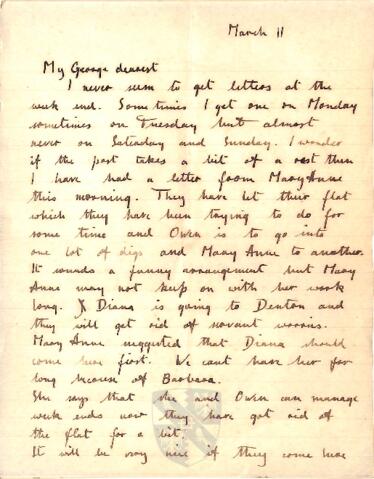 March 11
My George dearest
I never seem to get letters at the
week end. Sometimes I get one on Monday
sometimes on Tuesday but almost
never on Saturday and Sunday. I wonder
if the post takes a bit of a rest then
I have had a letter from Mary Anne
this morning. They have let their flat
which they have been trying to do for
some time and Owen is to go into
one lot of digs and Mary Anne to another.
It sounds a funny arrangement but Mary
Anne may not keep on with her work
long. Diana is going to Denton and
they will get rid of servant worries.
Mary Anne suggested that Diana should
come here first. We cant have her for
long because of Barbara.
She says that she and Owen can manage
week ends now they have got rid of
the flat for a bit.
It will be easy here if they come here